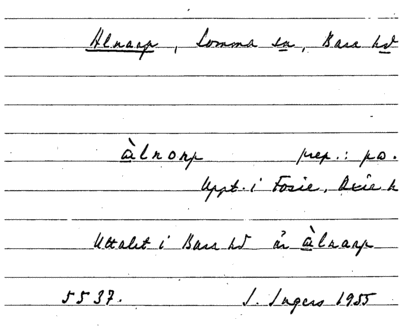 Alnarp, Lomma sn, Bara hd
àlnorp prep.: po.
Uppt. i Fosie, Oxie h
Uttalet i Bara hd är àlnarp
5537. I. Ingers 1955